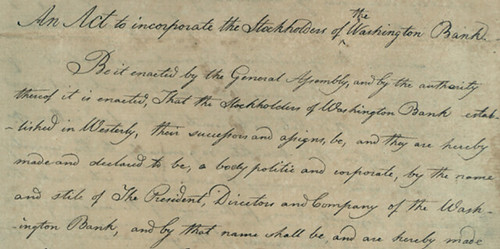 An Act to incorporate the Stockholders of the Washington Bank.
Be it enacted by the General Assembly, and by the authority
thereof it is enacted, That the Stockholders of Washington Bank estab-
-lished in Westerly, their successors and assigns, be, and they are hereby
made and declared to be, a body politic and corporate, by the name
and stile of The President, Directors and Company of the Wash-
ington Bank, and by that name shall be, and are hereby made